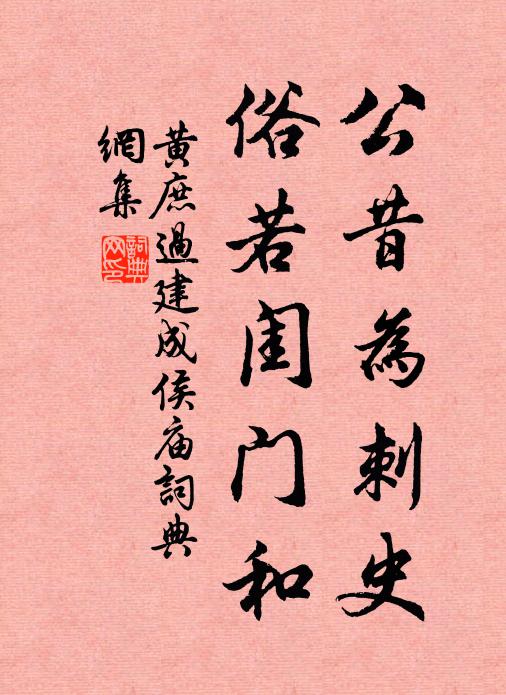 公昔為刺史
俗若闺门和
黄庶過建成侯庙詞典
網集
詞典
网印